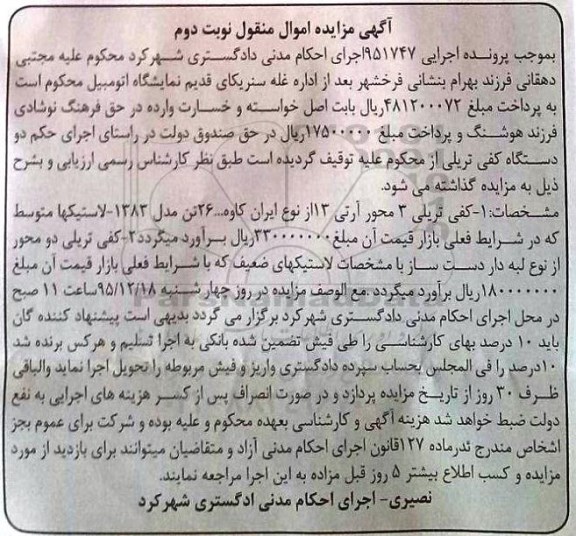 آگهی مزایده اموال منقول نوبت دوم
بموجب پرونده اجرایی ۹۵۱۷۴۷اجرای احکام مدنی دادگستری شهرکرد محکوم علیه مجتبی
دهقانی فرزند بهرام بنشانی فرخشهر بعد از اداره غله سنریکای قدیم نمایشگاه اتومبیل محکوم است
به پرداخت مبلغ ۴۸۱۲۰۰۰۷۲ریال بابت اصل خواسته و خسارت وارده در حق فرهنگ نوشادی
فرزند هوشنگ و پرداخت مبلغ ۱۷۵۰۰۰۰۰ریال در حق صندوق دولت در راستای اجرای حکم دو
دستگاه کفی تریلی از محکوم علیه توقیف گردیده است طبق نظر کارشناس رسمی ارزیابی و بشرح
ذیل به مزایده گذاشته می شود.
مشخصات:۱-کفی تریلی ۳ محور آرتی ۱۳از نوع ایران کاوه...۲۶تن مدل ۱۳۸۳-لاستیکها متوسط
که در شرایط فعلی بازار قیمت آن مبلغ۳۳۰۰۰۰۰۰۰ریال برآورد میگردد۲-کفی تریلی دو محور
از نوع لبه دار دست ساز با مشخصات لاستیکهای ضعیف که با شرایط فعلی بازار قیمت آن مبلغ
۱۸۰۰۰۰۰۰۰ریال برآورد میگردد .مع الوصف مزایده در روز چهار شنبه ۹۵/۱۲/۱۸ساعت ۱۱ صبح
در محل اجرای احکام مدنی دادگستری شهرکرد برگزار می گردد بدیهی است پیشنهاد کننده گان
باید ۱۰ درصد بهای کارشناسی را طی فیش تضمین شده بانکی به اجرا تسلیم و هرکس برنده شد
۱۰درصد را فی المجلس بحساب سپرده دادگستری واریز و فیش مربوطه را تحویل اجرا نماید والباقی
ظرف ۳۰ روز از تاریخ مزایده پردازد و در صورت انصراف پس از کسر هزینه های اجرایی به نفع
دولت ضبط خواهد شد هزینه آگهی و کارشناسی بعهده محکوم و علیه بوده و شرکت برای عموم بجز
اشخاص مندرج ئدرماده ۱۲۷قانون اجرای احکام مدنی آزاد و متقاضیان میتوانند برای بازدید از مورد
مزایده و کسب اطلاع بیشتر ۵ روز قبل مزاده به این اجرا مراجعه نمایند.
نصیری- اجرای احکام مدنی ادگستری شهرکرد